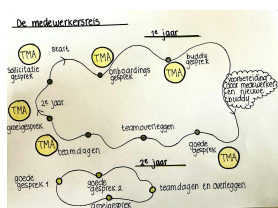 De medewerkersreis
1e jaar
start
TMA
TMA
sollicitatie
gesprek
onboardings
gesprek
buddy
gesprek
TMA
voorbereiding
door medewerker
en nieuwe
buddy
TMA
2e jaar
groeigesprek
TMA
teamdagen
teamoverleggen
goede
gesprek
TMA
2e jaar
goede
gesprek 1
goede
gesprek 2
teamdagen en overleggen
groeigesprek